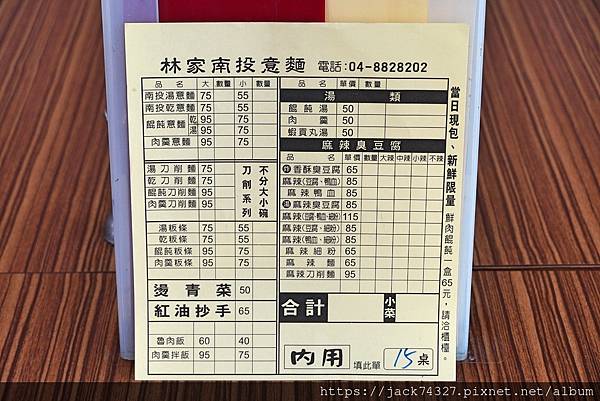 林家南投意麵 電話:04-8828202
品名 大 數量 小 數量
南投湯意麵 75 55
南投乾意麵 75 55
餛飩意麵 乾 95 75
湯 95 75
肉羹意麵 95 75
湯刀削麵 75
乾刀削麵 75
餛飩刀削麵 95
肉羹刀削麵 95
刀削系列
不分大小碗
湯粄條 75 55
乾粄條 75 55
餛飩粄條 95 75
肉羹粄條 95 75
燙青菜 50
紅油抄手 65
魯肉飯 60 40
肉羹拌飯 95 75
品名 單價 數量
湯類
餛飩湯 50
肉羹 50
蝦貢丸湯 50
麻辣臭豆腐
品名 單價 數量 大辣 中辣 小辣 不辣
炸 香酥臭豆腐 65
麻辣(豆腐、鴨血) 85
麻辣鴨血 85
湯 麻辣臭豆腐 85
麻辣(豆腐、鴨血、細粉) 115
麻辣(豆腐、細粉) 85
麻辣(鴨血、細粉) 85
麻辣細粉 65
麻辣麵 65
麻辣刀削麵 95
合計 小菜
內用 填此單 15桌
當日現包、新鮮限量 鮮肉餛飩一盒65元,請洽櫃檯。
https://jack74327.pixnet.net/album